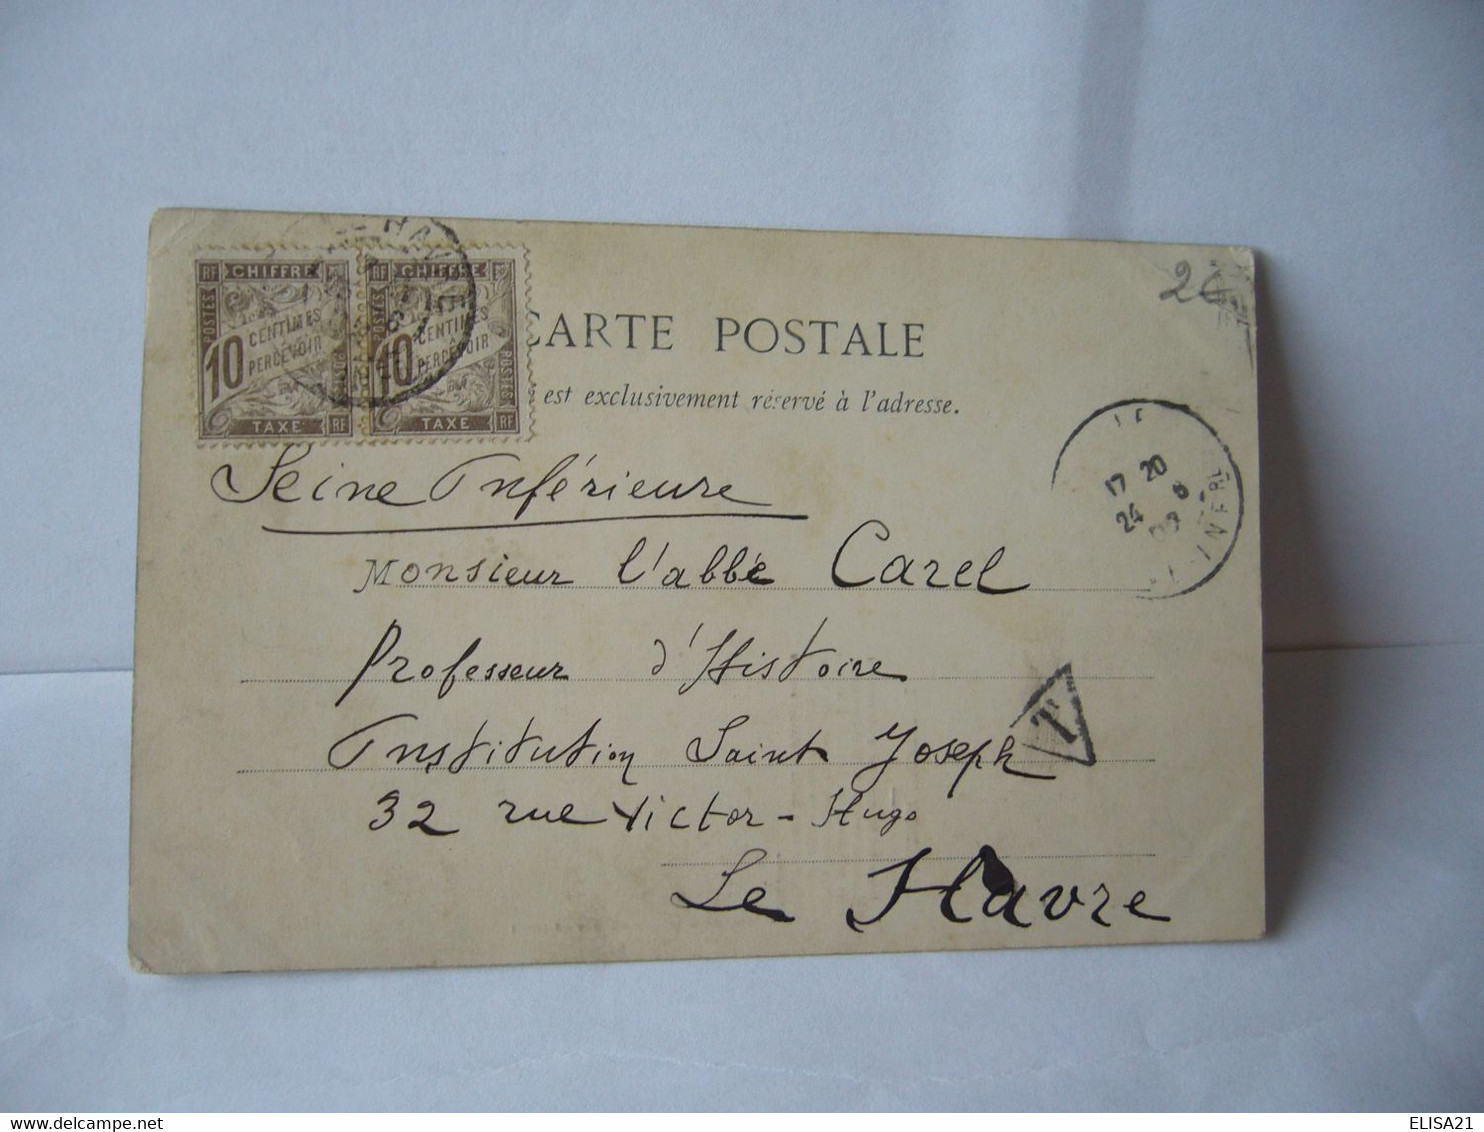 RF CHIFFRE
POSTES
10 CENTIMES
PERCEVOIR
POSTES
TAXE RF
RF CHIFFRE
10 CENTIMES
À
PERCEVOIR
POSTES
TAXE RF
HAVRE
CARTE POSTALE
est exclusivement réservé à l'adresse.
17 20
24
INFRE
Seine Inférieure
Monsieur l'abbé Carel
Professeur d'Histoire
T
Institution Saint Joseph
32 rue Victor-Hugo
Le Havre
ELISA21